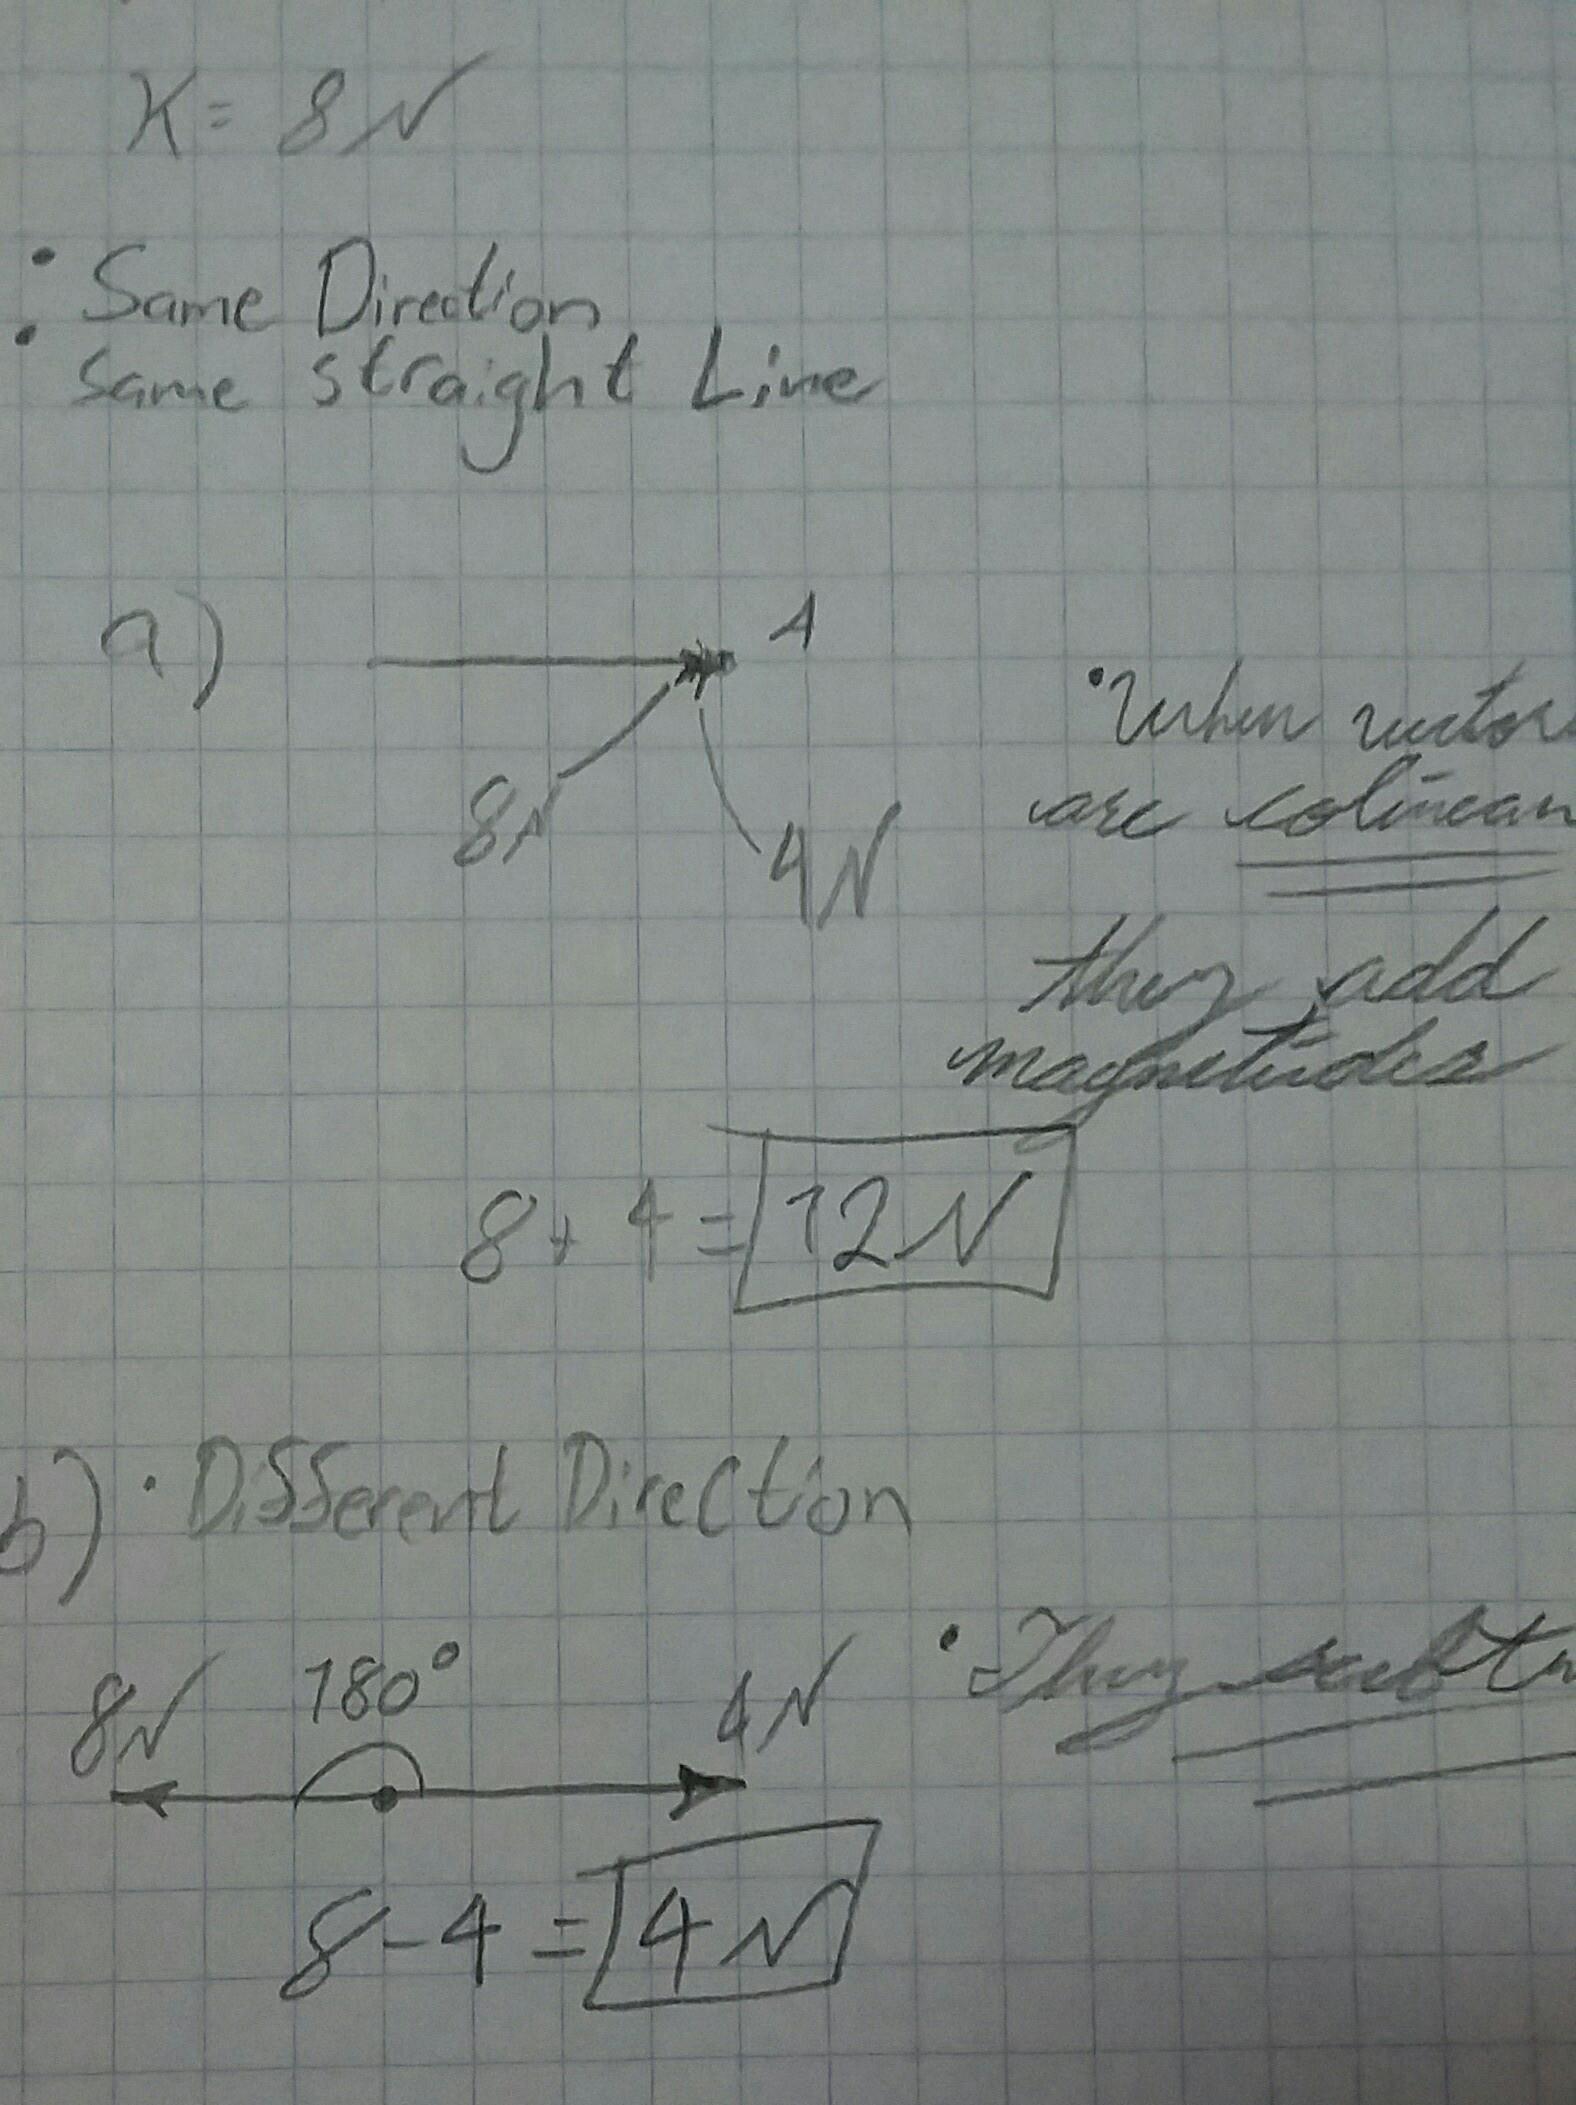 K = 8N
• Same Direction
• same straight Line
a)
A
8N
4N
• When vector
are colinear
they add
magnitudes
8 + 4 = 12N
b) • Different Direction
8N 180° 4N
• They subtr
8 - 4 = 4N